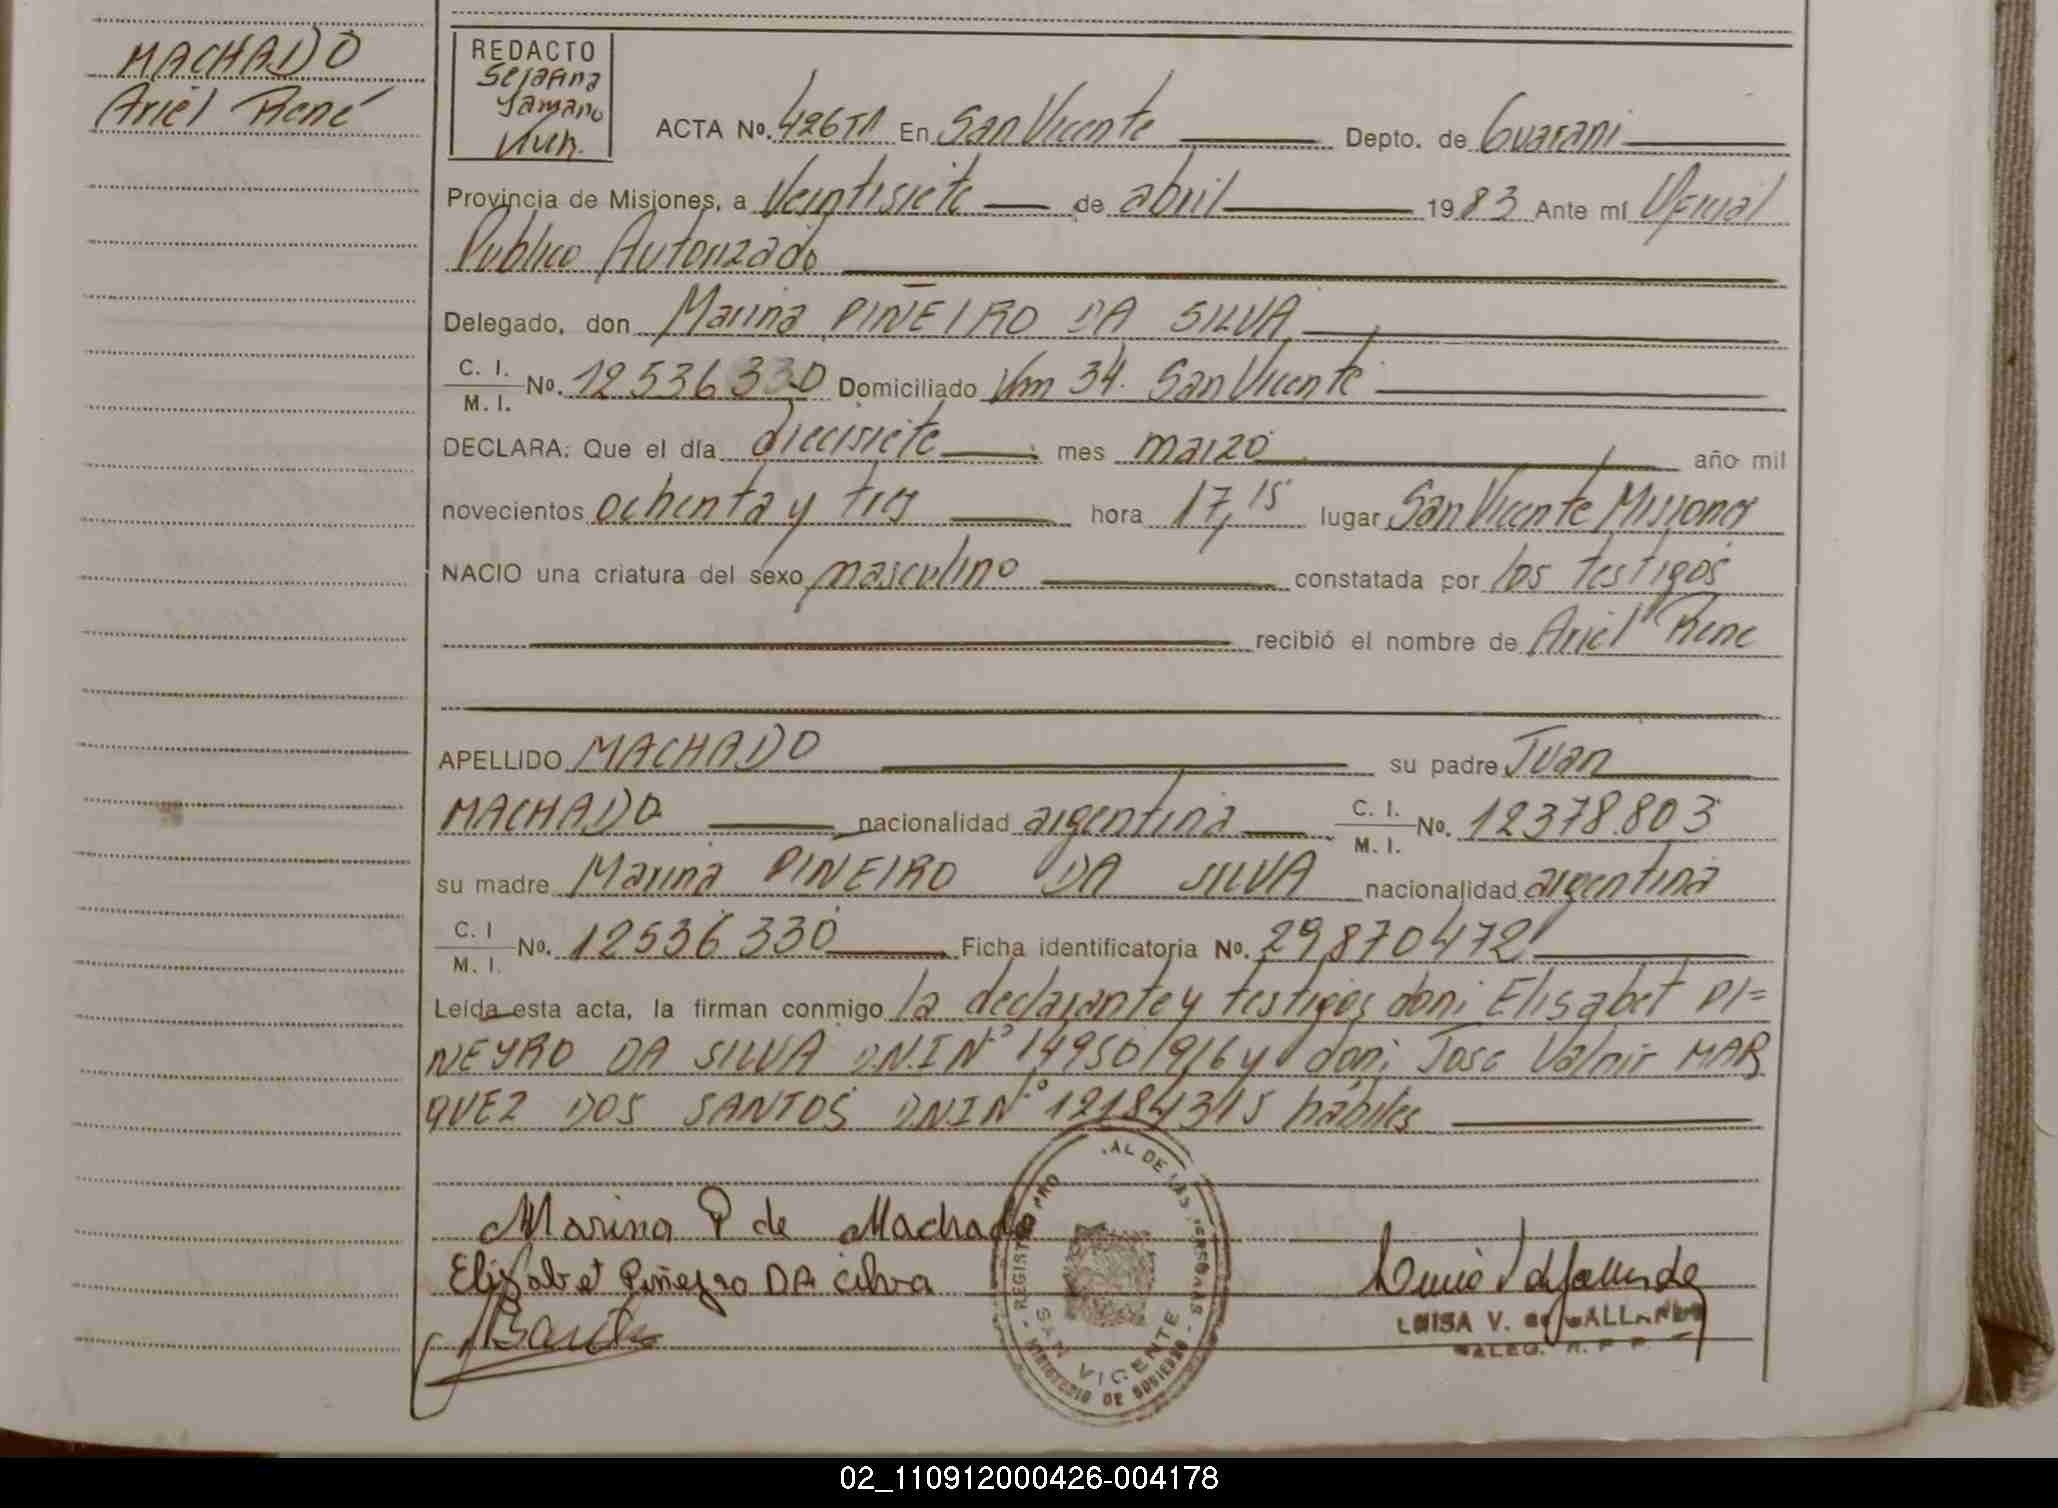 MACHADO
Ariel René
REDACTO
ACTA Nº. 426 T1 En San Vicente Depto. de Guarani
Provincia de Misiones, a Veintisiete de abril 1983 Ante mí Oficial
Publico Autorizado
Delegado, don Marina PIÑEIRO DA SILVA
C. I.
M. I. Nº. 12536330 Domiciliado Km 34. San Vicente
DECLARA: Que el día diecisiete mes marzo año mil
novecientos ochenta y tres hora 17,15 lugar San Vicente Misiones
NACIO una criatura del sexo masculino constatada por los testigos
recibió el nombre de Ariel Rene
APELLIDO MACHADO su padre Juan
MACHADO nacionalidad argentina C. I.
M. I. Nº. 12378.803
su madre Marina PINEIRO DA SILVA nacionalidad argentina
C. I
M. I. Nº. 12536330 Ficha identificatoria Nº. 29870472
Leída esta acta, la firman conmigo la declarante y testigos doñi Elisabet PI=
NEYRO DA SILVA D.N.I Nº 14950916 y don; Jose Valnir MAR
QUEZ DOS SANTOS D.N.I Nº 12184315 habiles
Marina P de Machado
Elizabet Piñeyro DA cilva
SAN VICENTE
LUISA V. DE GALLARDO
02_110912000426-004178